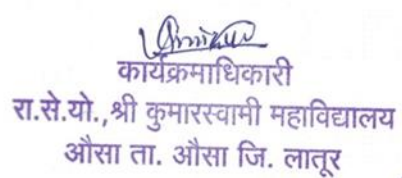 कार्यक्रमाधिकारी
रा.से.यो.,श्री कुमारस्वामी महाविद्यालय
औसा ता. औसा जि. लातूर